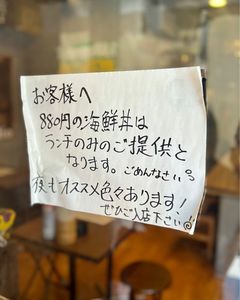 お客様へ
880円の海鮮丼は
ランチのみのご提供と
なります。ごめんなさい。
夜もオススメ色々あります!
ぜひご入店下さい